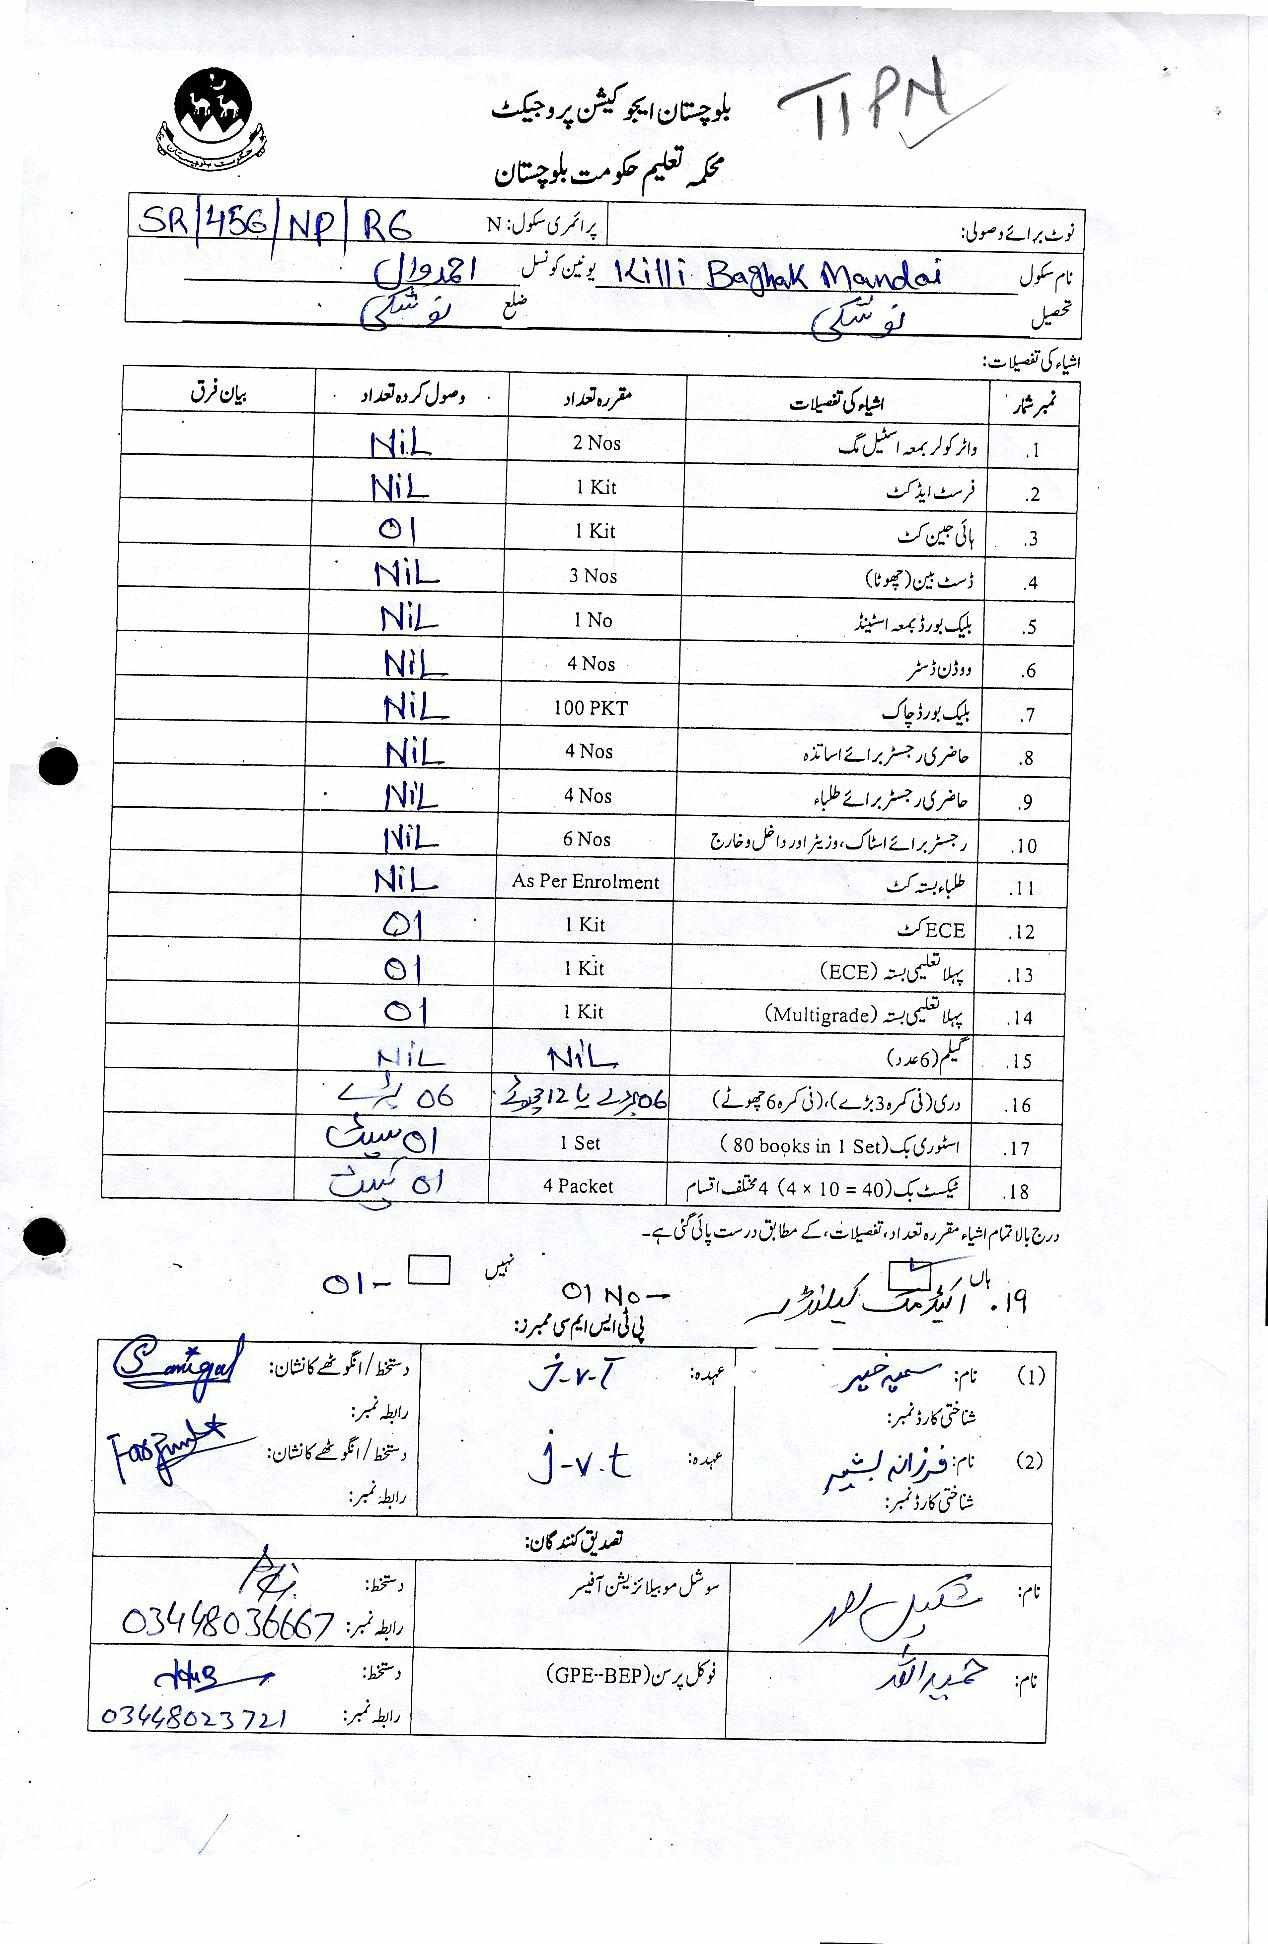 TIPN
بلوچستان ایجوکیشن پروجیکٹ
محکمہ تعلیم حکومت بلوچستان
حکومت بلوچستان
نوٹ برائے وصولی: پرائمری سکول: N SR/456/NP/R6
نام سکول Killi Baghak Mandai یونین کونسل احمدوال
تحصیل نوشکی ضلع نوشکی
اشیاء کی تفصیلات:
نمبر شمار اشیاء کی تفصیلات مقررہ تعداد وصول کردہ تعداد بیان فرق
1. واٹر کولر بمعہ اسٹیل مگ 2 Nos NiL
2. فرسٹ ایڈ کٹ 1 Kit NiL
3. ہائی جین کٹ 1 Kit 01
4. ڈسٹ بین (چھوٹا) 3 Nos NiL
5. بلیک بورڈ بمعہ اسٹینڈ 1 No NiL
6. ووڈن ڈسٹر 4 Nos NiL
7. بلیک بورڈ چاک 100 PKT NiL
8. حاضری رجسٹر برائے اساتذہ 4 Nos NiL
9. حاضری رجسٹر برائے طلباء 4 Nos NiL
10. رجسٹر برائے اسٹاک، وزیٹر اور داخل و خارج 6 Nos NiL
11. طلباء بستہ کٹ As Per Enrolment NiL
12. ECE کٹ 1 Kit 01
13. پہلا تعلیمی بستہ (ECE) 1 Kit 01
14. پہلا تعلیمی بستہ (Multigrade) 1 Kit 01
15. گیلم (6 عدد) NiL NiL
16. دری (فی کمرہ 3 بڑے)، (فی کمرہ 6 چھوٹے) 06 بڑے یا 12 چھوٹے 06 بڑے
17. اسٹوری بک (80 books in 1 Set) 1 Set 01 سیٹ
18. ٹیکسٹ بک (4 × 10 = 40) 4 مختلف اقسام 4 Packet 01
درج بالا تمام اشیاء مقررہ تعداد، تفصیلات، کے مطابق درست پائی گئی ہے۔
ہاں نہیں
۱۹. اکیڈمک کیلنڈر 01 No – 01–
پی ٹی ایس ایم سی ممبرز:
(1) نام: سمیہ خیر عہدہ: J-v-T دستخط/انگوٹھے کا نشان:
شناختی کارڈ نمبر: رابطہ نمبر:
(2) نام: فرزانہ بشیر عہدہ: j-v.t دستخط/انگوٹھے کا نشان:
شناختی کارڈ نمبر: رابطہ نمبر:
تصدیق کنندگان:
نام: شکیل سوشل موبیلائزیشن آفیسر دستخط:
رابطہ نمبر: 03448036667
نام: حمید اللہ فوکل پرسن (GPE-BEP) دستخط:
رابطہ نمبر: 03448023721